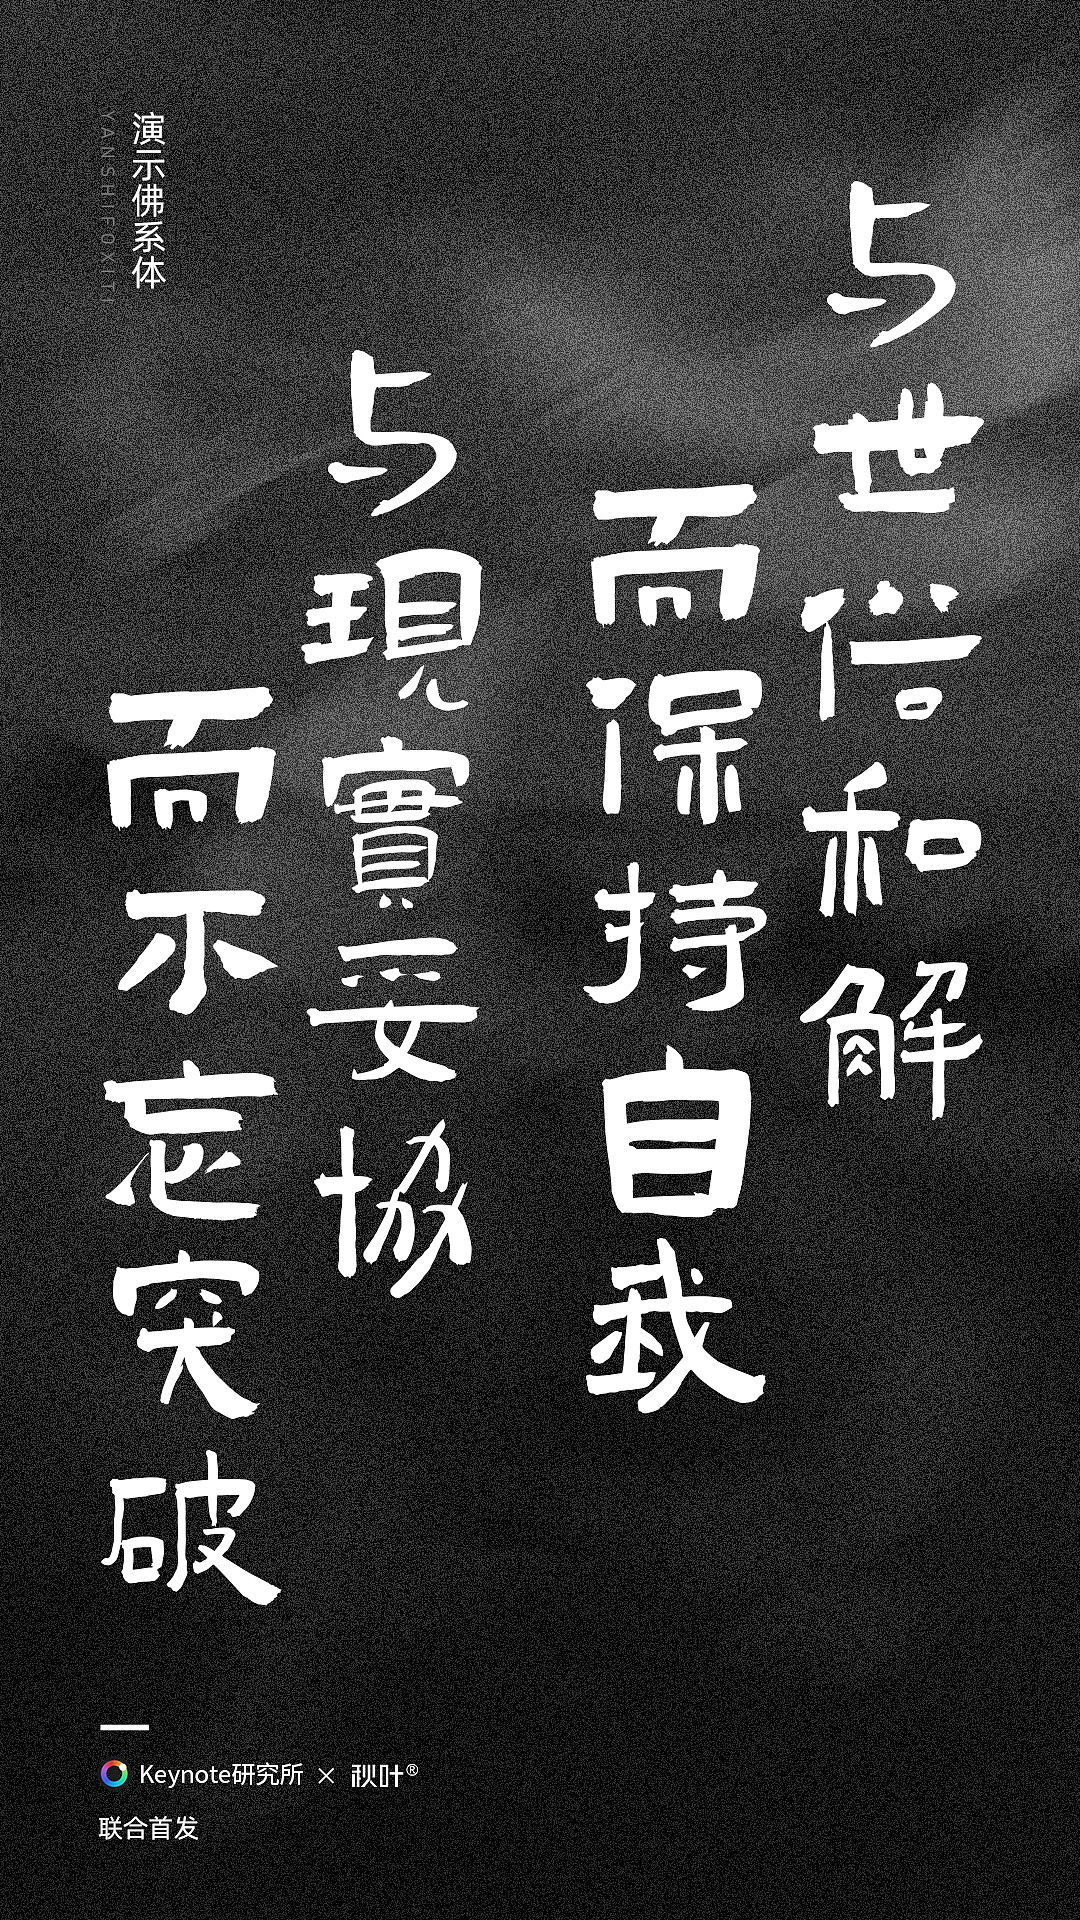 与世俗和解
而保持自我
与現實妥協
而不忘突破
演示佛系体
YANSHIFOXITI
Keynote研究所 × 秋叶®
联合首发